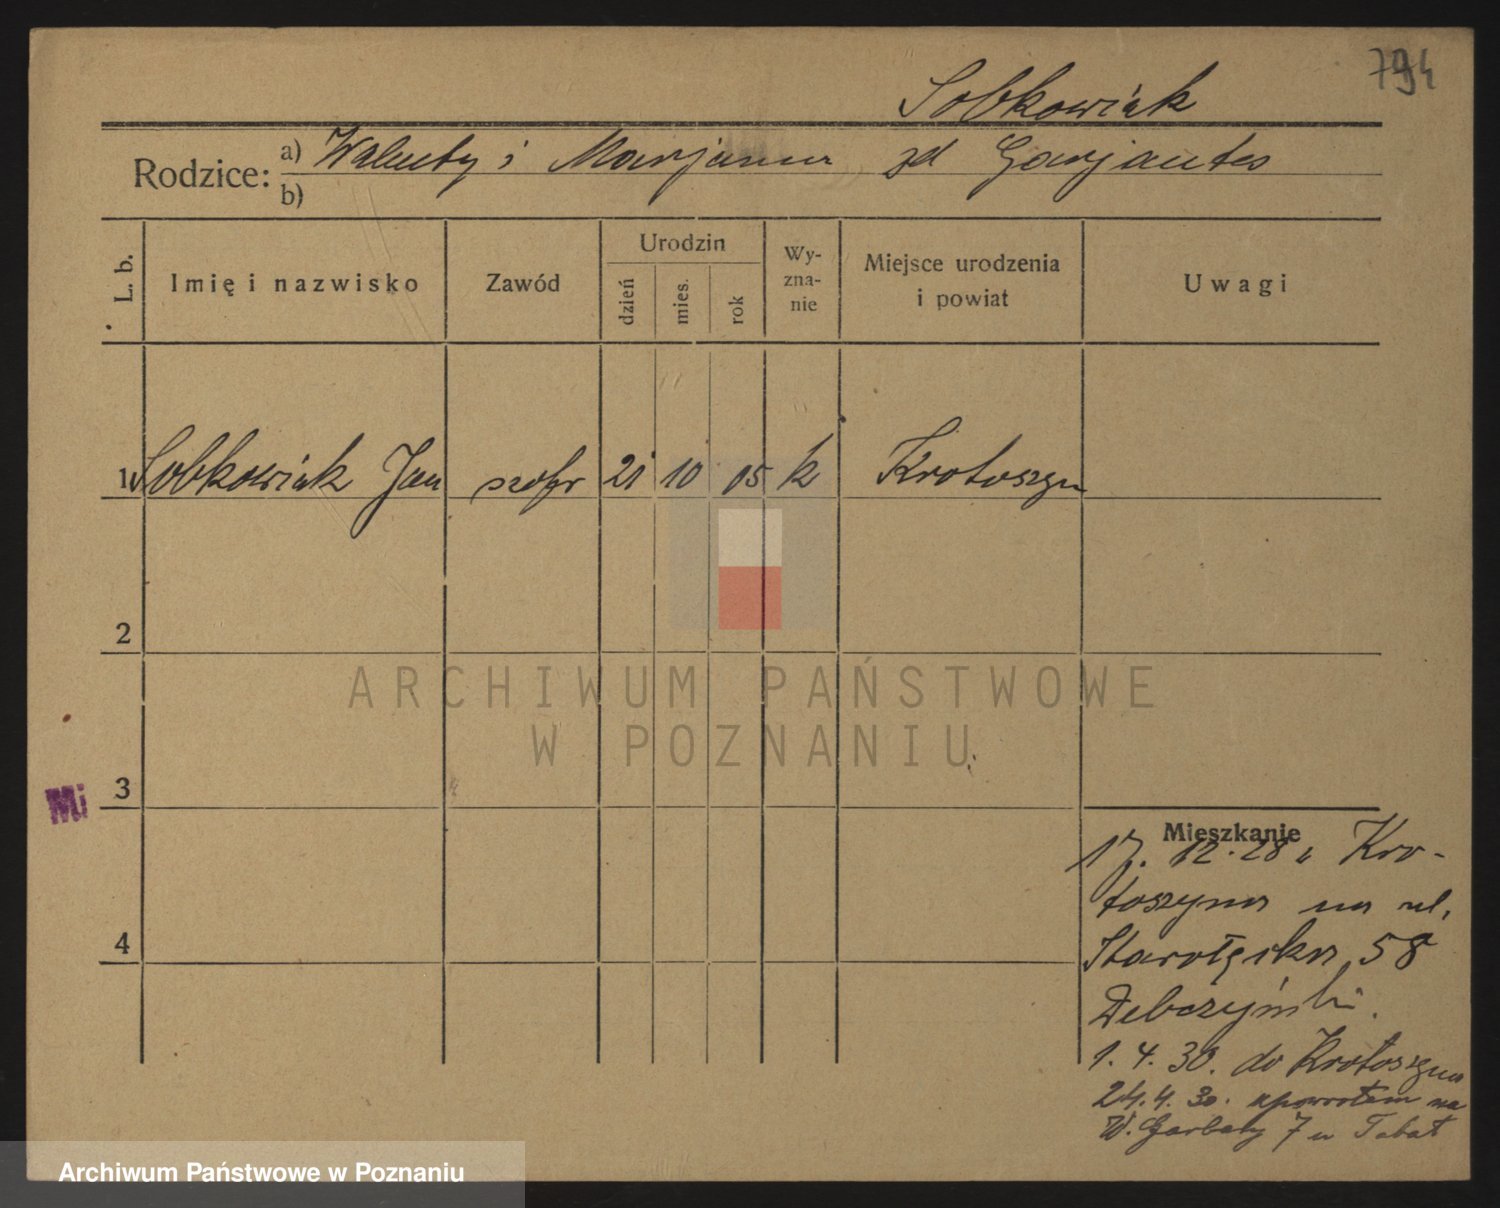 794
Sobkowiak
Rodzice: a) Walenty i Marjanna zd Garjantes
b)
L. b. Imię i nazwisko Zawód Urodzin dzień mies. rok Wy-zna-nie Miejsce urodzenia i powiat Uwagi
1 Sobkowiak Jan szofr 21 10 15 k Krotoszyn
2
3
4
Mi
Mieszkanie
17. 12. 28 z Kro-
toszyna na ul.
Starołęcka 58
Debczyński.
1. 4. 30. do Krotoszyna
24. 4. 30. spowrotem na
W. Garbary 7 u
ARCHIWUM PAŃSTWOWE
W POZNANIU
Archiwum Państwowe w Poznaniu